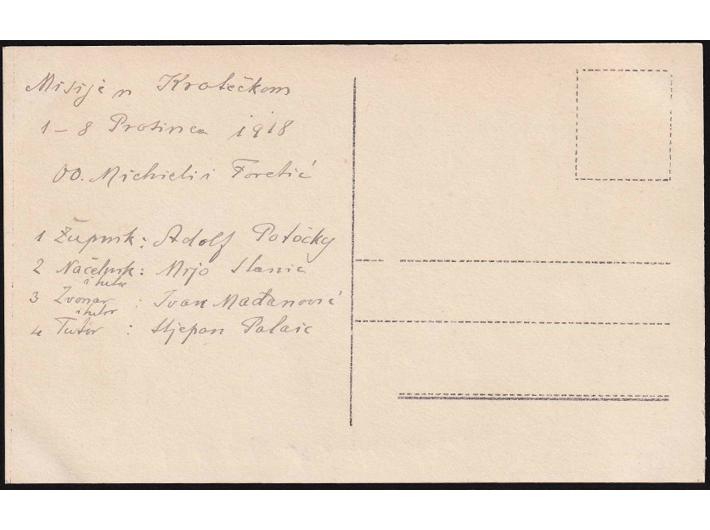 Misije u Kratečkom
1-8 Prosinca 1918
OO. Michieli i Foretić
1 Župnik: Adolf Potočky
2 Načelnik: Mijo Stanić
i tutor
3 Zvonar : Ivan Mađanović
i tutor
4 Tutor : Stjepan Palaic